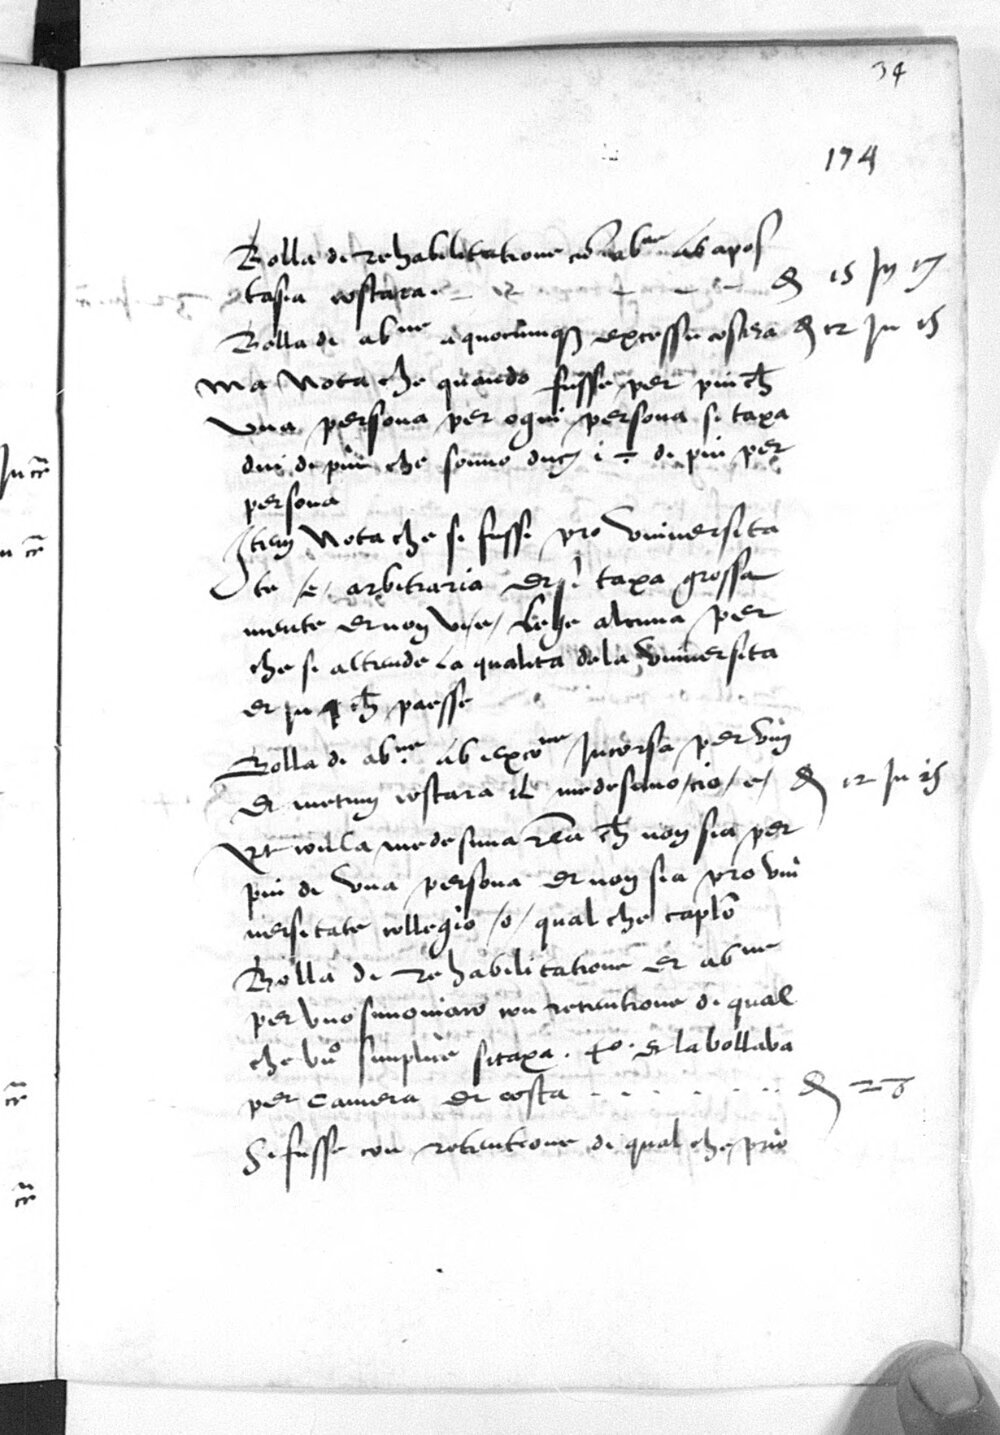 34
174
Bolla di rehabilitatione cū abne ab apos
tasia costara . — — — — — đ 15 in 17
Bolla di abne a quocumqꝫ excessu costara đ 12 in 15
Ma Nota che quando fusse per piu ch̄
una persona per ogni persona si taxa
dui di piu che sonno duc̄ 1 ÷ di piu per
persona
Item Nota che si fussi pro universita
te /e/ arbitraria et si taxa grossa
mente et non vi /e/ alcuna per
che si attende la qualita dela universita
et in ch̄ paesse
Bolla di abne ab excone Incorsa per vim
et metum costara il medesimo /cio/ e/ đ 12 in 15
Et colla medesima ch̄ non sia per
piu di una persona et non sia pro uni
versitate collegio /o/ qual che caplō
Bolla di rehabilitatione et abne
per uno simoniaco con retentione di qual
che simplice si taxa . et la bollata
per Camera et costa . . . . . . đ 26
Si fusse con retentione di qual che prio
In cīe
n cīe
cīe
cīe